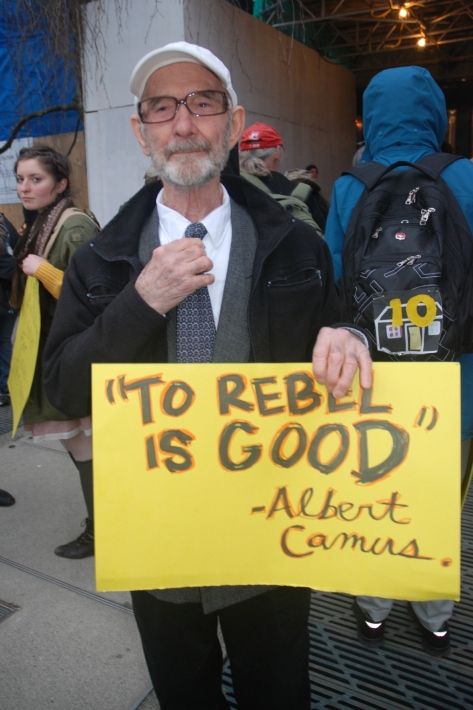 "TO REBEL
IS GOOD"
-Albert
Camus.
10